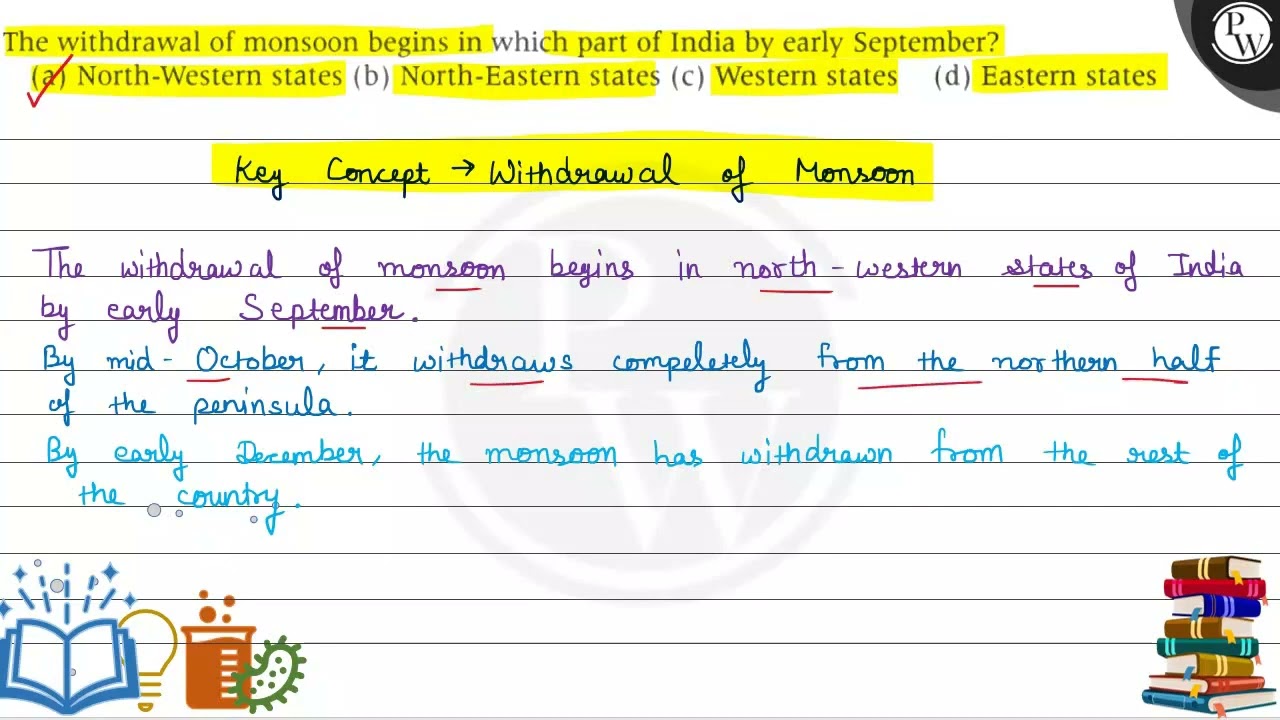 The withdrawal of monsoon begins in which part of India by early September?
(a) North-Western states (b) North-Eastern states (c) Western states (d) Eastern states
Key Concept → Withdrawal of Monsoon
The withdrawal of monsoon begins in north-western states of India
by early September.
By mid-October, it withdraws compeletely from the northern half
of the peninsula.
By early December, the monsoon has withdrawn from the rest of
the country.
PW
PW